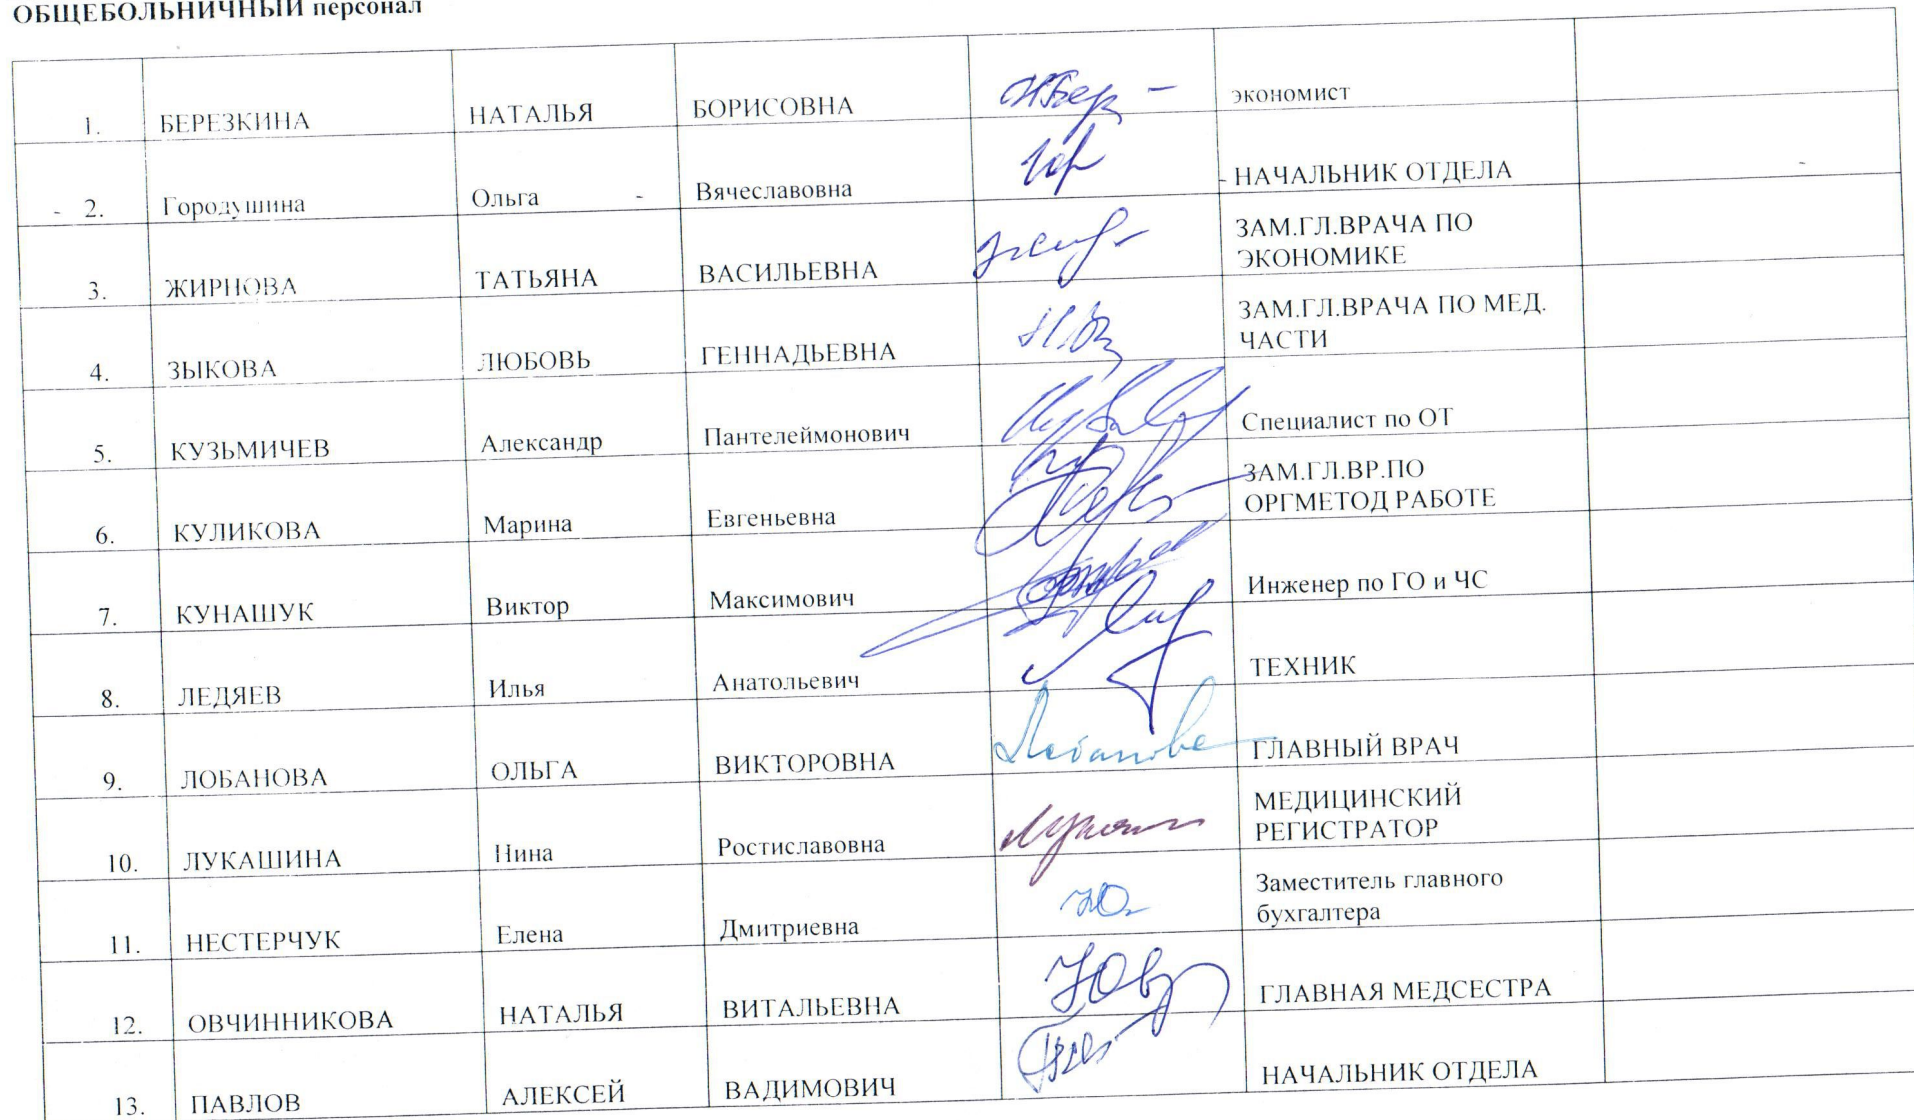 ОБЩЕБОЛЬНИЧНЫЙ персонал
1. БЕРЕЗКИНА НАТАЛЬЯ БОРИСОВНА экономист
2. Городушина Ольга Вячеславовна НАЧАЛЬНИК ОТДЕЛА
3. ЖИРНОВА ТАТЬЯНА ВАСИЛЬЕВНА ЗАМ.ГЛ.ВРАЧА ПО
ЭКОНОМИКЕ
4. ЗЫКОВА ЛЮБОВЬ ГЕННАДЬЕВНА ЗАМ.ГЛ.ВРАЧА ПО МЕД.
ЧАСТИ
5. КУЗЬМИЧЕВ Александр Пантелеймонович Специалист по ОТ
6. КУЛИКОВА Марина Евгеньевна ЗАМ.ГЛ.ВР.ПО
ОРГМЕТОД РАБОТЕ
7. КУНАШУК Виктор Максимович Инженер по ГО и ЧС
8. ЛЕДЯЕВ Илья Анатольевич ТЕХНИК
9. ЛОБАНОВА ОЛЬГА ВИКТОРОВНА Лобанова ГЛАВНЫЙ ВРАЧ
10. ЛУКАШИНА Нина Ростиславовна МЕДИЦИНСКИЙ
РЕГИСТРАТОР
11. НЕСТЕРЧУК Елена Дмитриевна Заместитель главного
бухгалтера
12. ОВЧИННИКОВА НАТАЛЬЯ ВИТАЛЬЕВНА ГЛАВНАЯ МЕДСЕСТРА
13. ПАВЛОВ АЛЕКСЕЙ ВАДИМОВИЧ НАЧАЛЬНИК ОТДЕЛА